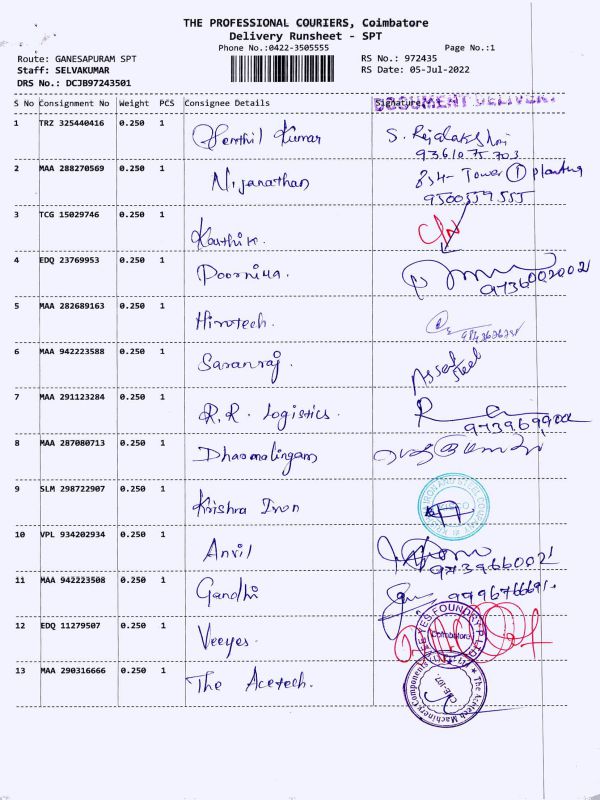 THE PROFESSIONAL COURIERS, Coimbatore
Delivery Runsheet - SPT
Phone No.:0422-3505555
Page No.:1
Route: GANESAPURAM SPT
RS No.: 972435
Staff: SELVAKUMAR
RS Date: 05-Jul-2022
DRS No.: DCJB97243501
S No Consignment No Weight PCS Consignee Details Signature
DOCUMENT DELIVER
1 TRZ 325440416 0.250 1 Senthil Kumar S. Rajalakshmi
9361075703
2 MAA 288270569 0.250 1 Nijanathan 834- Tower 1 planting
9500559555
3 TCG 15029746 0.250 1 Kauthik.
4 EDQ 23769953 0.250 1 Poorniya. 9736002002
5 MAA 282689163 0.250 1 Hirotech.
6 MAA 942223588 0.250 1 Saranraj. Assel steel
7 MAA 291123284 0.250 1 R.R. Logistics.
8 MAA 287080713 0.250 1 Dharmalingam
9 SLM 298722907 0.250 1 Krishna Iron
IRON AND STEEL COMPANY
10 VPL 934202934 0.250 1 Anvil 9739660021
11 MAA 942223508 0.250 1 Gandhi 9996766691.
12 EDQ 11279507 0.250 1 Veeyes.
VEE YES FOUNDRY P LTD
Coimbatore
13 MAA 290316666 0.250 1 The Acetech.
The Acetech Machinery Components
CBE-107.